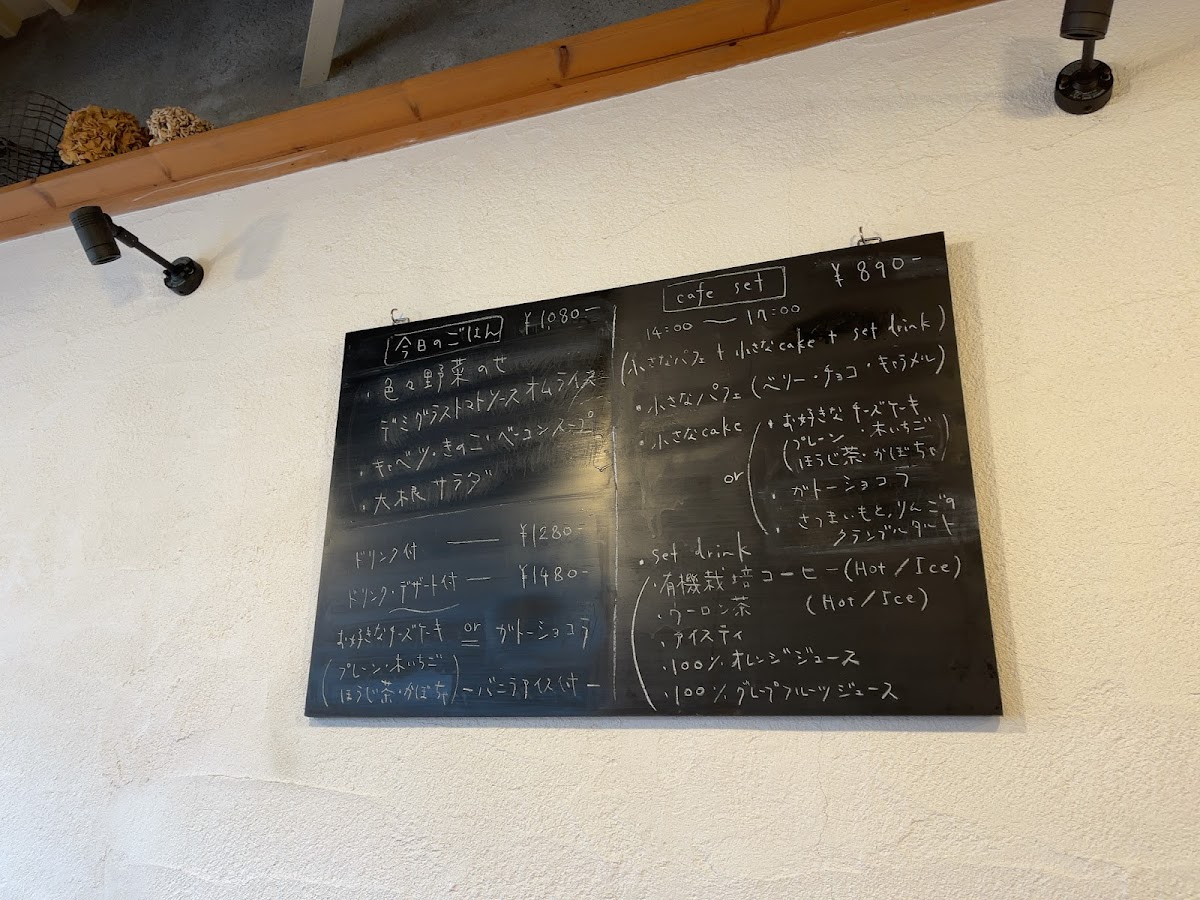 今日のごはん ¥1080-
・色々野菜のせ
デミグラストマトソースオムライス
・キャベツ・きのこ・ベーコンスープ
・大根サラダ
ドリンク付 ― ¥1280-
ドリンク・デザート付 ― ¥1480-
お好きなチーズケーキ or ガトーショコラ
(プレーン・木いちご
ほうじ茶・かぼちゃ) ーバニラアイス付ー
cafe set ¥890-
14:00 〜 17:00
(小さなパフェ + 小さなcake + set drink)
・小さなパフェ (ベリー・チョコ・キャラメル)
・小さなcake
or
・お好きなチーズケーキ
(プレーン・木いちご
ほうじ茶・かぼちゃ)
・ガトーショコラ
・さつまいもと、りんごの
クランブルタルト
・set drink
・有機栽培コーヒー (Hot/Ice)
・ウーロン茶 (Hot/Ice)
・アイスティ
・100% オレンジジュース
・100% グレープフルーツジュース